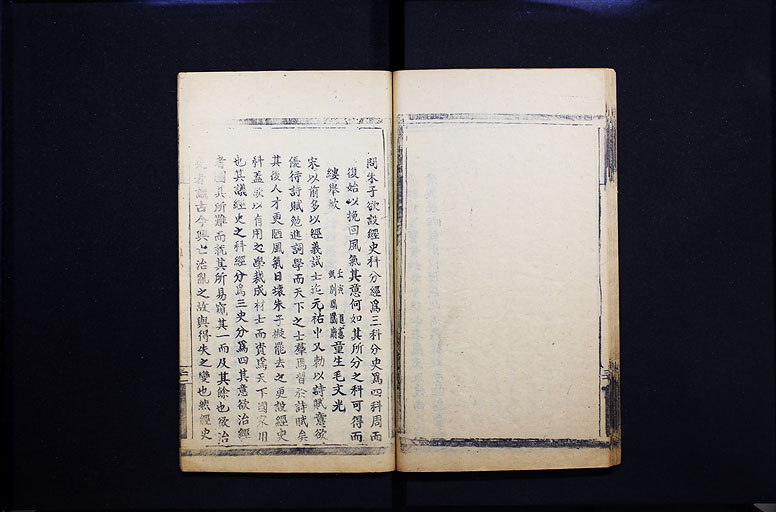 問朱子欲設經史科分經爲三科分史爲四科周而
復始以挽回風氣其意何如其所分之科可得而
縷舉歟
壬寅
別
童生毛文光
宋以前多以經義試士迄元祐中又勅以詩賦意欲
優待詩賦勉進詞學而天下之士羣焉習於詩賦矣
其後人才更匱風氣日壞朱子擬罷去之更設經史
科蓋欲以有用之學裁成材士而賓爲天下國家用
也其議經史之科經分爲三史分爲四其意欲治經
者圖其所難而就其所易窺其一而及其餘也欲治
史者識古今興亡治亂之故與得失之變也然經史